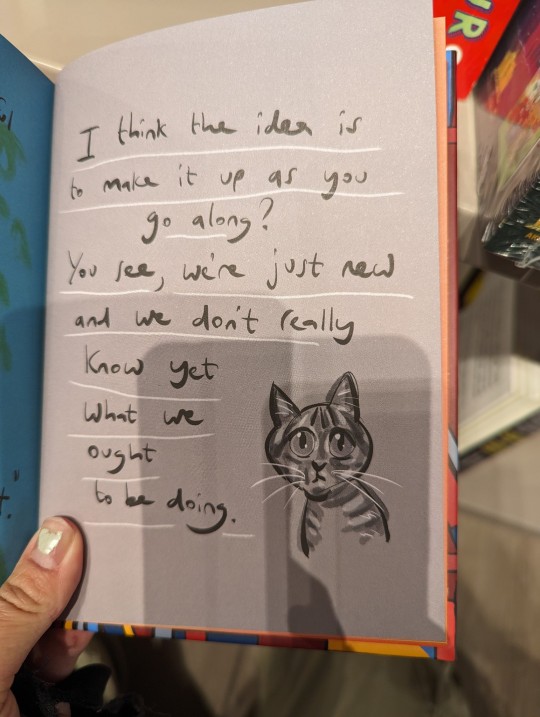 I think the idea is
to make it up as you
go along?
You see, we're just new
and we don't really
know yet
what we
ought
to be doing.
UR